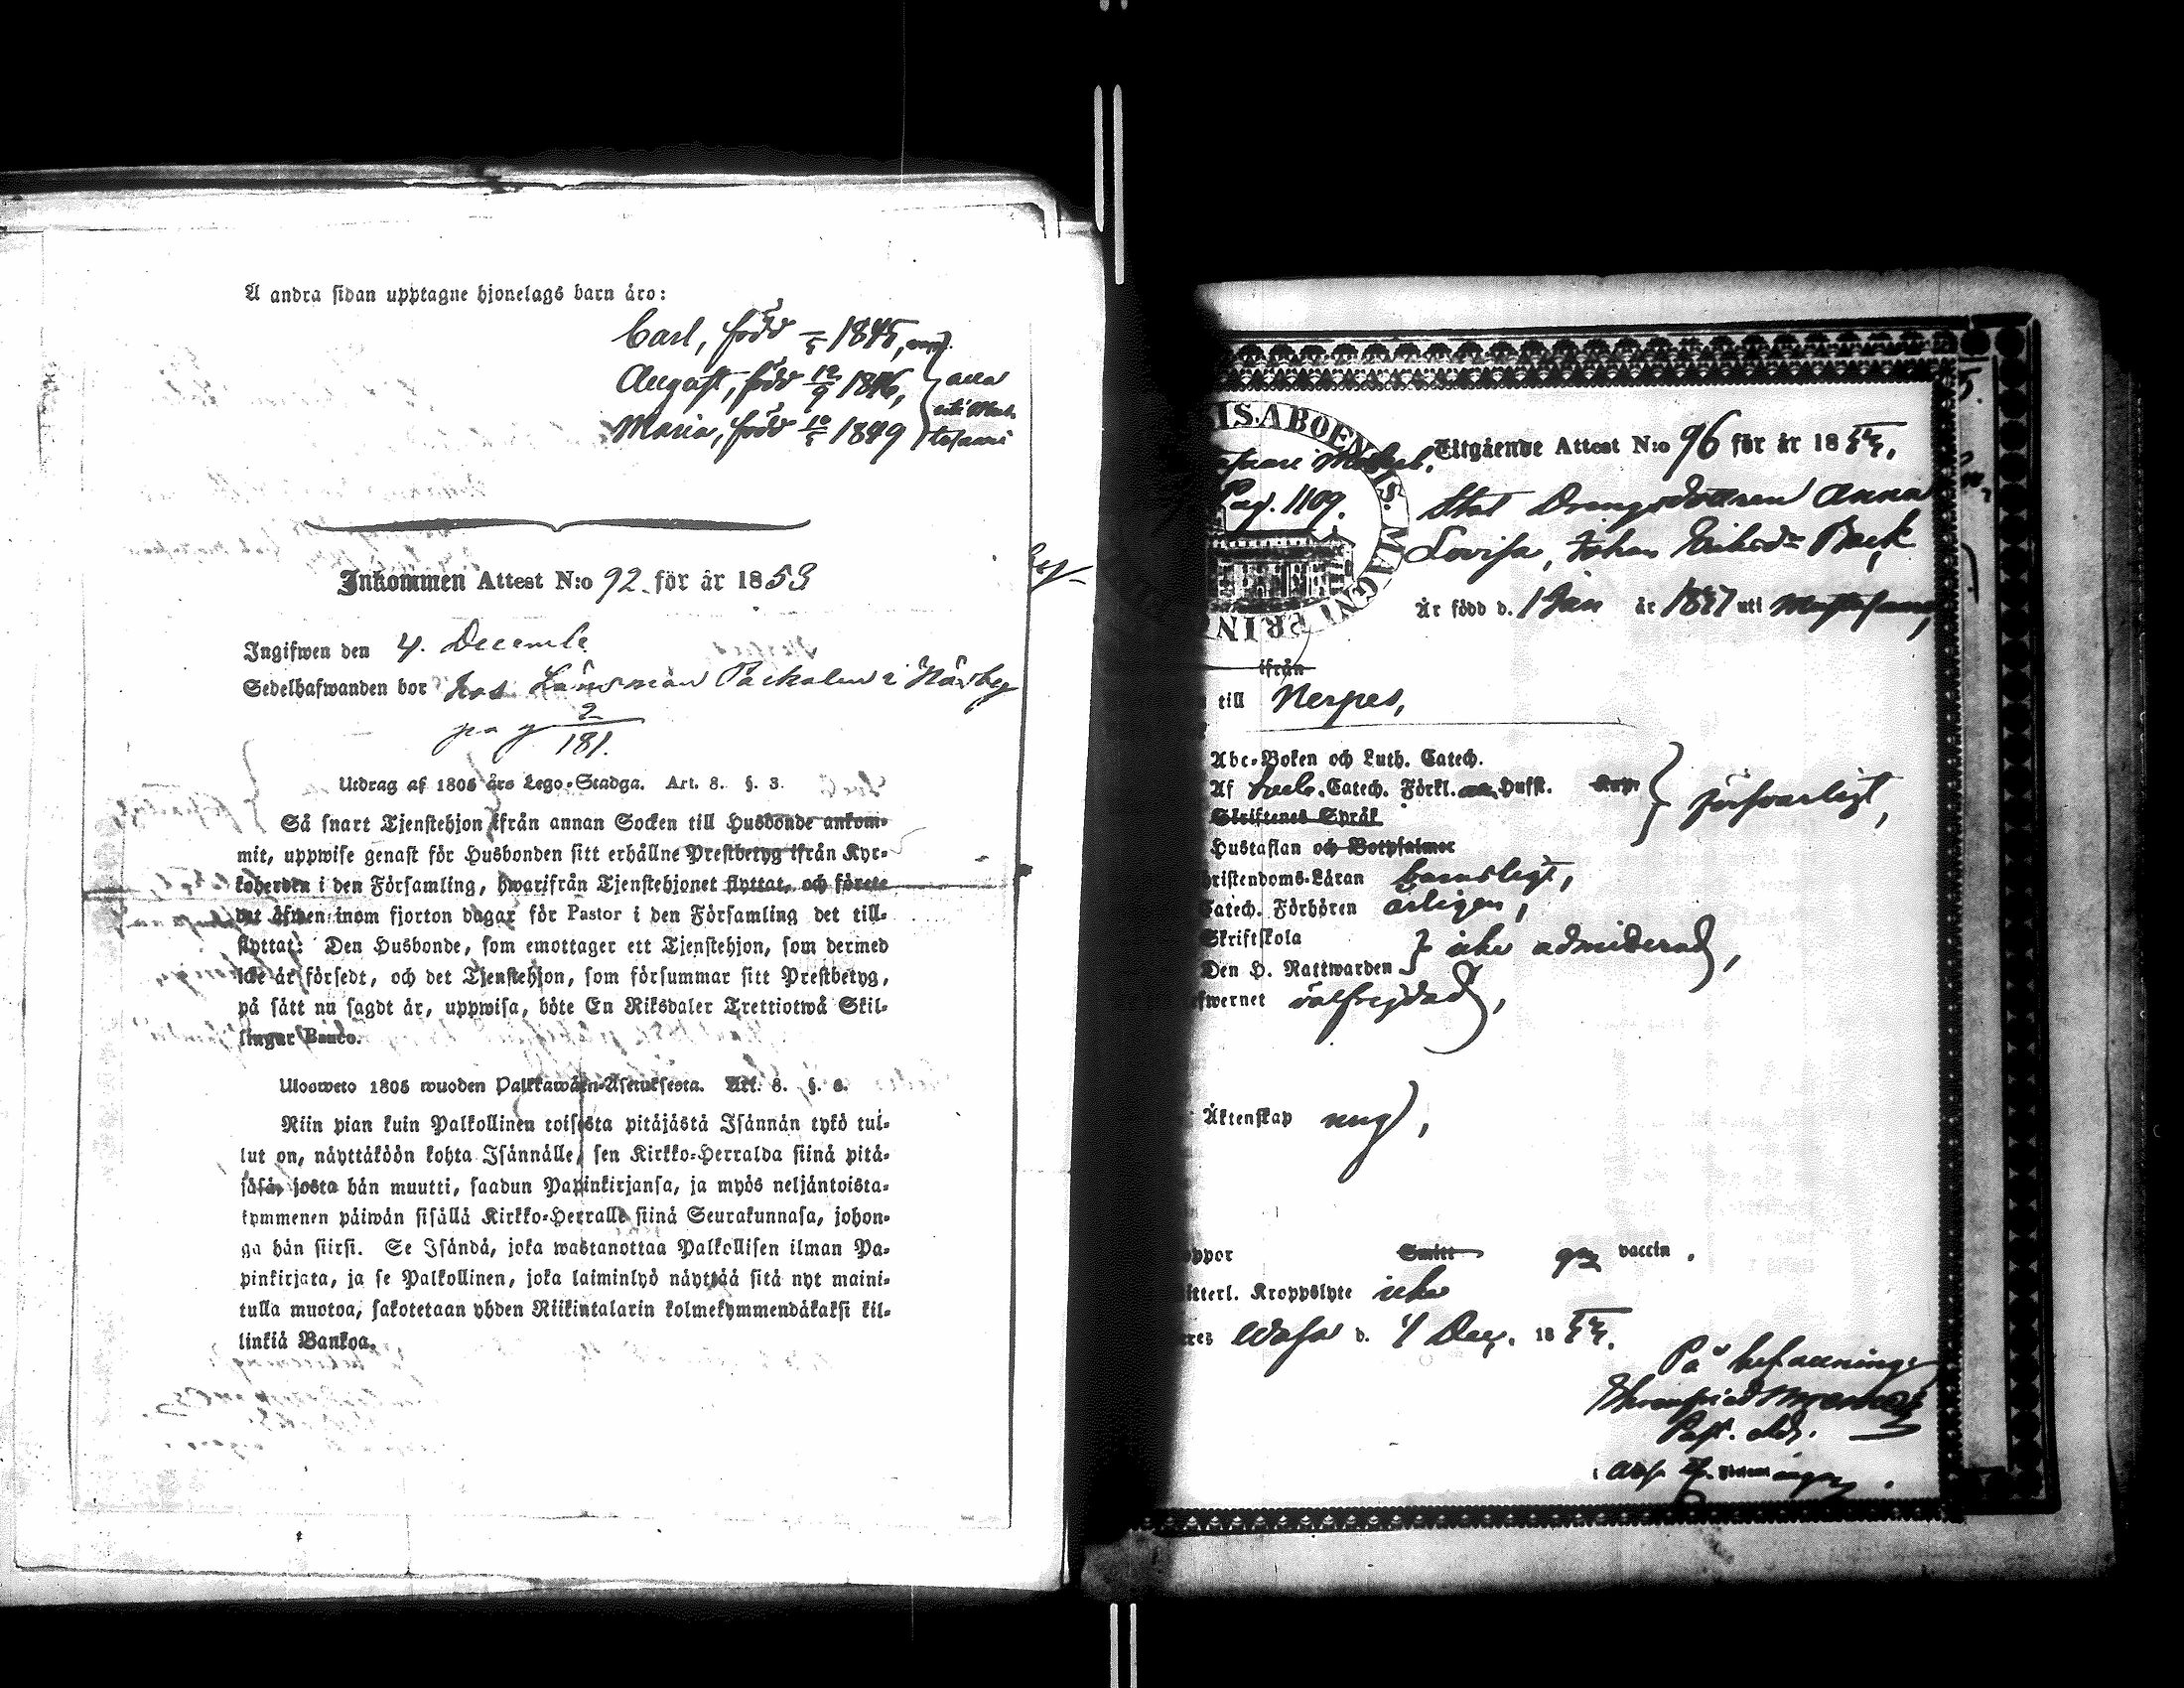 Å andra sidan upptagne hjonelags barn äro:
Carl, född 1/5 1845,
August, född 12/9 1846,
Maria, född 10/5 1849
alla
uti Mus-
tasaari
Inkommen Attest N:o 92. för år 1853
Ingifwen den 4. Decembe
Sedelhafwanden bor hos Länsman Packalen i Närby
pag 2/181.
Utdrag af 1805 års Lego-Stadga. Art. 8. §. 3.
Så snart Tjenstehjon ifrån annan Socken till Husbonde ankom-
mit, uppwise genast för Husbonden sitt erhållne Prestbetyg ifrån Kyr-
koherden i den Församling, hwarifrån Tjenstehjonet flyttat, och förete
det äfwen inom fjorton dagar för Pastor i den Församling det till-
flyttat: Den Husbonde, som emottager ett Tjenstehjon, som dermed
icke är försedt, och det Tjenstehjon, som försummar sitt Prestbetyg,
på sätt nu sagdt är, uppwisa, böte En Riksdaler Trettiotwå Skil-
lingar Banco.
Ulosweto 1805 wuoden Palkkawäen-Asetuksesta. Art. 8. §. 3.
Niin pian kuin Palkollinen toisesta pitäjästä Isännän tykö tul-
lut on, näyttäköön kohta Isännälle, sen Kirkko-Herralda siinä pitä-
jäsä, josta hän muutti, saadun Papinkirjansa, ja myös neljäntoista-
kymmenen päiwän sisällä Kirkko-Herralle siinä Seurakunnasa, johon-
ga hän siirsi. Se Isändä, joka wastanottaa Palkollisen ilman Pa-
pinkirjata, ja se Palkollinen, joka laiminlyö näyttää sitä nyt maini-
tulla muotoa, sakotetaan yhden Riikintalarin kolmekymmendäkaksi kil-
linkiä Bankoa.
IS. ABOENSIS. MAGNI PRIN
Pag. 1109.
Utgående Attest N:o 96 för år 1853.
Stat Drengsdottren Anna
Lovisa, Johan Eriksdr Back
Är född d. 1 Jan år 1837 uti Mustasaari,
ifrån
till Nerpes,
Abc-Boken och Luth. Catech.
Af Sveb. Catech. Förkl. Hufst.
försvarligt,
Skriftenes Språk
Hustaflan och Botpsalmer
hristendoms-Läran barnsligt,
Catech. Förhören årligen,
Skriftskola
Den H. Nattwarden
icke admitterad,
efwernet välfrejdad,
Äktenskap ung,
oppor Smitt gm vaccin.
itterl. Kroppslyte icke
eres Wasa d. 4 Dec. 1853.
På befallning:
Past. Adj.